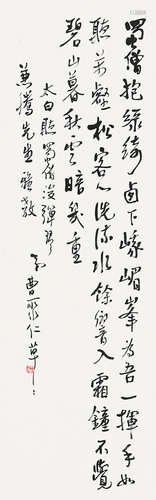 蜀僧抱綠綺卤下峨嵋峯為吾一揮手如
聽萬壑松客心洗流水餘響入霜鐘不覺
碧山暮秋云暗幾重
太白聽蜀僧濬彈琴
先生雅教
曹聚仁草